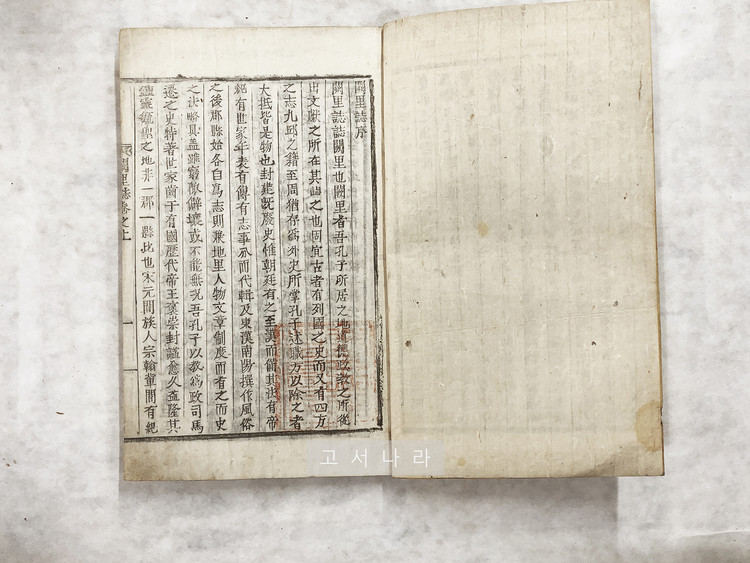 闕里誌序
闕里誌誌闕里也闕里者吾孔子所居之地道德政教之所從
出文獻之所在其誌之也固宜古者有列國之史而又有四方
之志九邱之籍至周猶存爲外史所掌孔子述職方以除之者
大抵皆是物也封建既廢史惟朝廷有之至漢而備其法有帝
紀有世家年表有傳有志事分而代輯及東漢南陽撰作風俗
之後郡縣始各自爲志則兼地里人物文章制度而有之而史
之決略具盖雖窮陬僻壤或不能無況吾孔子以教爲政司馬
遷之史特著世家齒于有國歷代帝王褒崇封謚愈久益隆其
之地非一郡一縣比也宋元間族人宗翰輩間有紀
闕里誌卷之上
고서나라